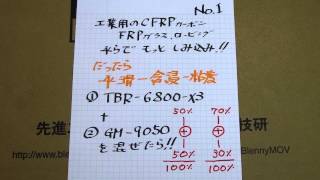 No.1
工業用のCFRPカーボン
FRPグラス、ロービング
平らで もっと しみ込み!!
だったら
平滑ー含浸ー粘着
① TBR-6800-X3
50% 70%
+
② GM-9050
を混ぜたら!!
50% 30%
100% 100%
先進
技研
http://www.ble
lennyMOV